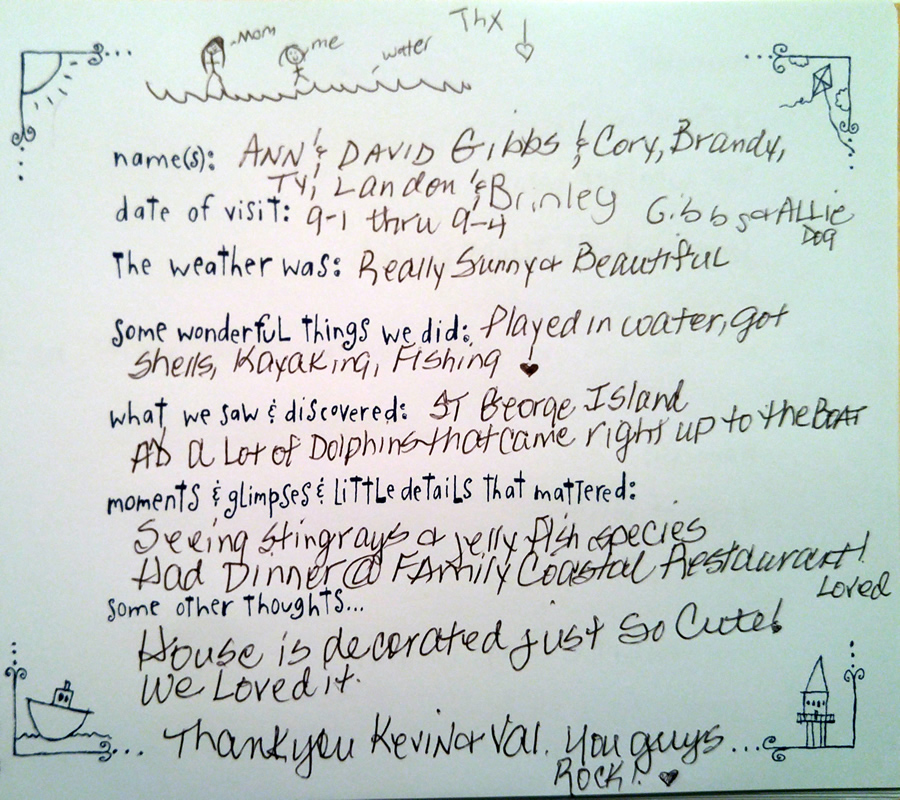 Mom me water Thx
name(s): ANN & DAVID Gibbs & Cory, Brandy,
Ty, Landon & Brinley Gibbs & ALLIE
Dog
date of visit: 9-1 thru 9-4
The weather was: Really Sunny & Beautiful
some wonderful things we did: Played in water, got
shells, Kayaking, Fishing
what we saw & discovered: ST George Island
A lot of Dolphins that came right up to the BOAT
moments & glimpses & little details that mattered:
Seeing stingrays & jelly fish species
Had Dinner @ FAmily Coastal Restaurant!
Loved
some other thoughts...
House is decorated just so Cute!
We Loved it.
Thank you Kevin & Val. You guys
Rock!